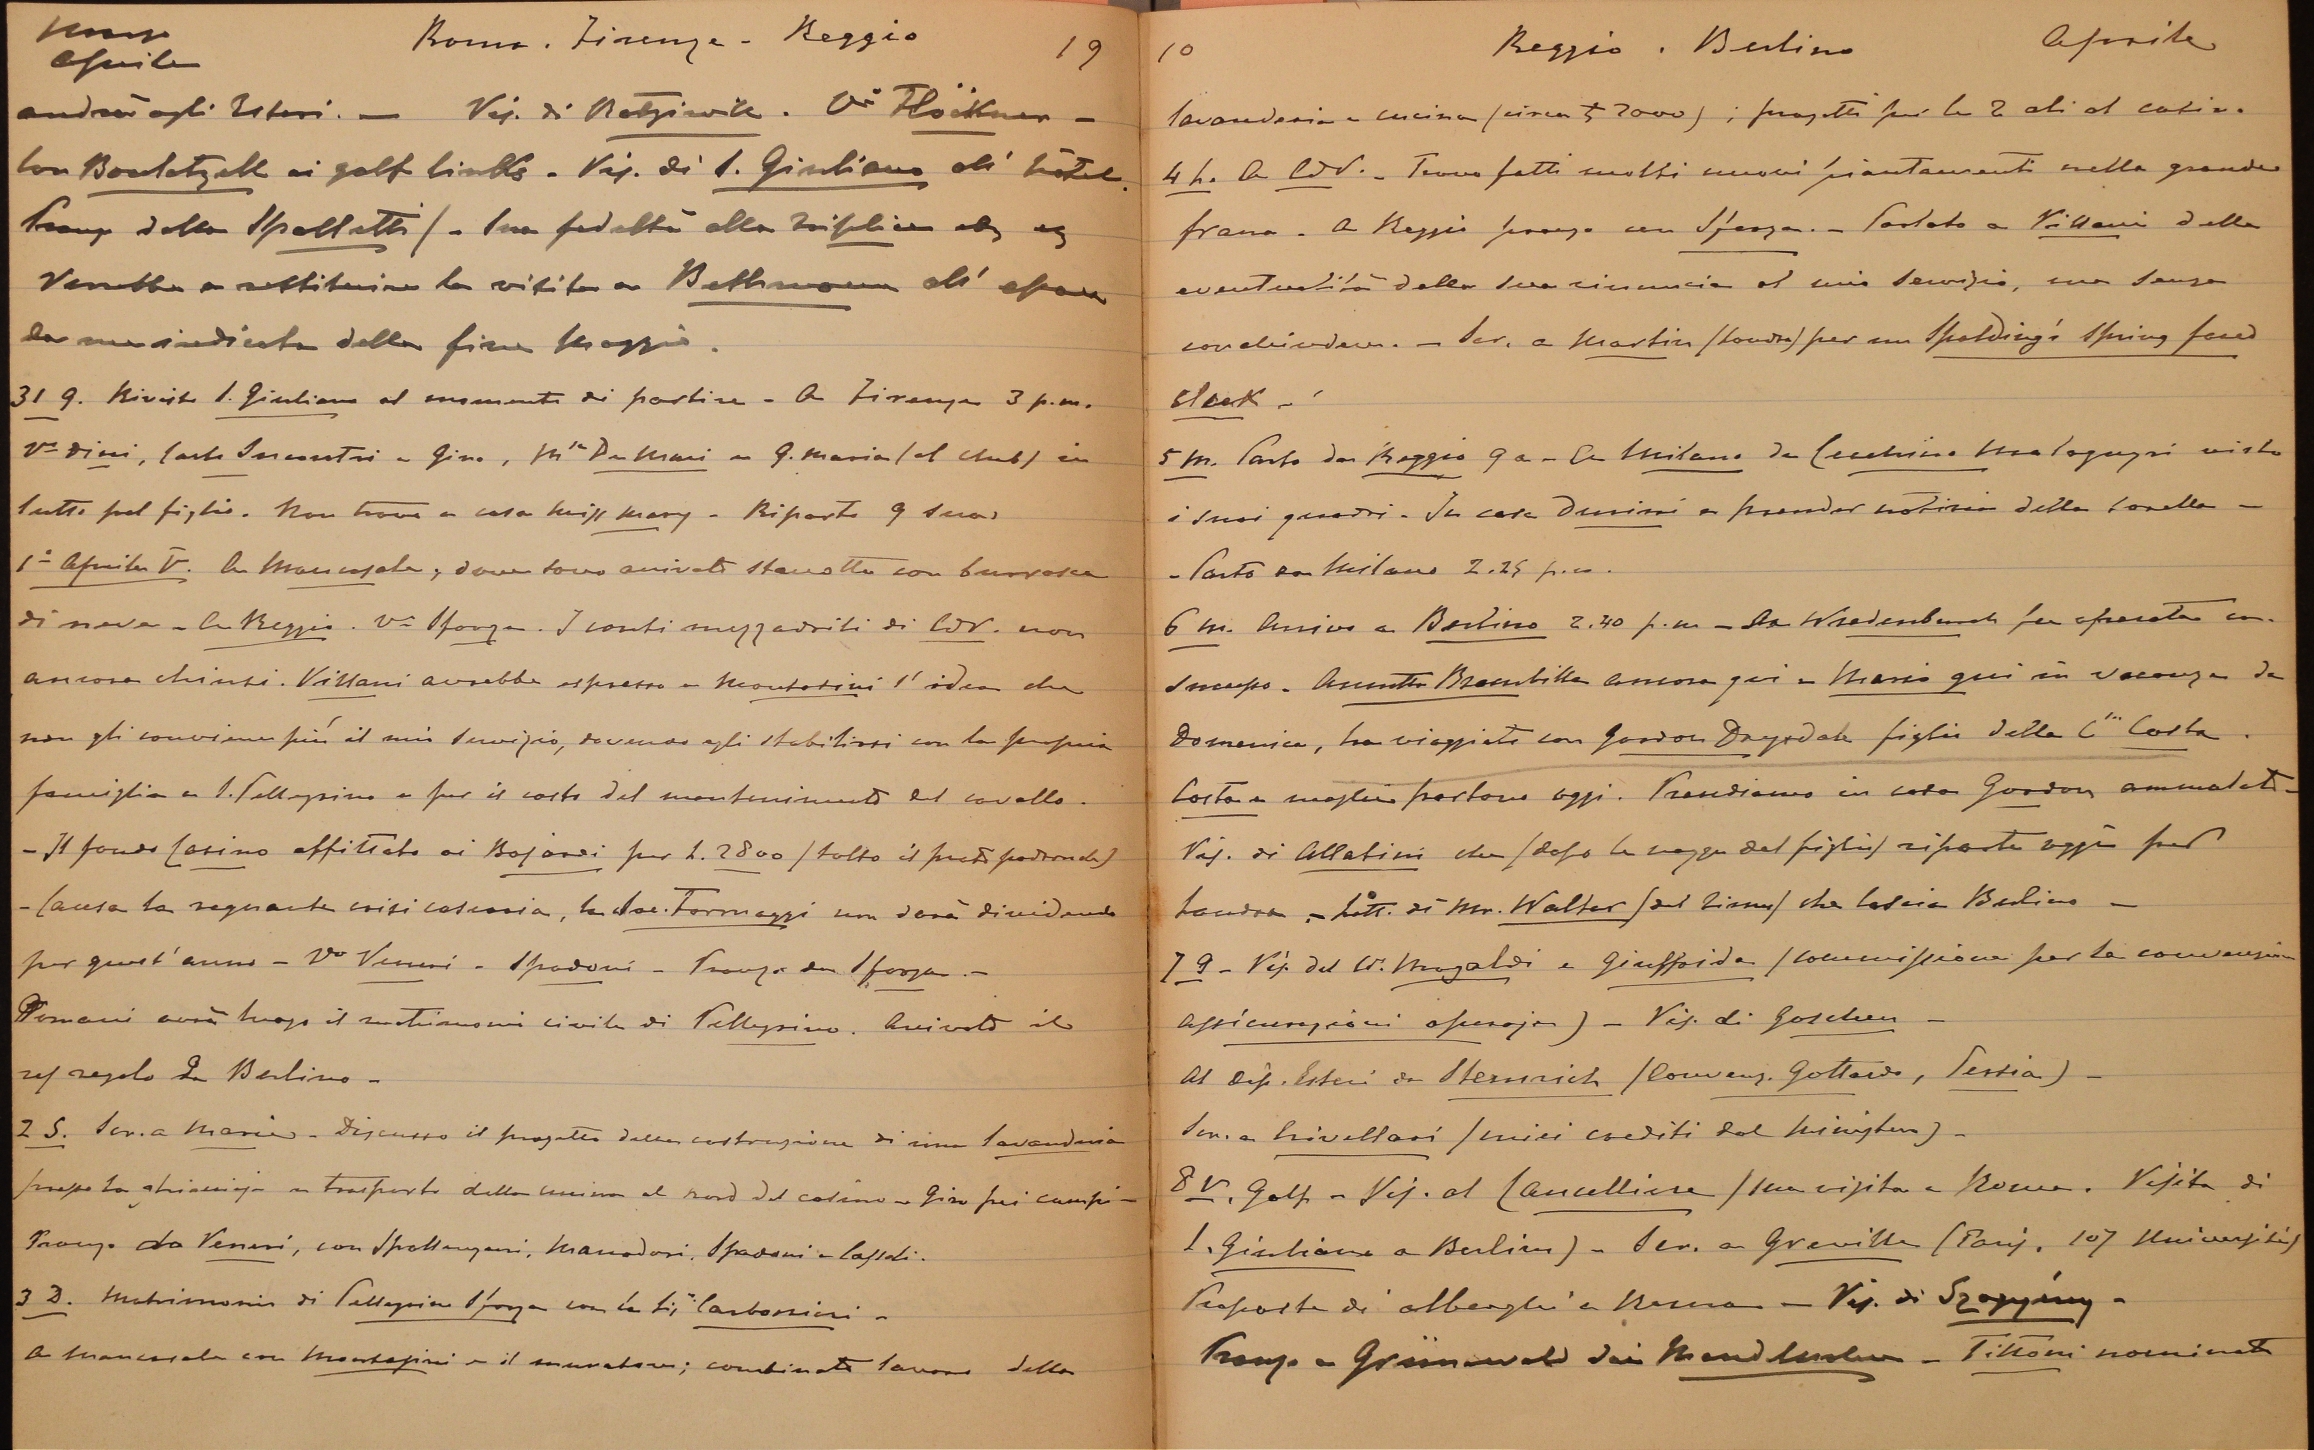 Marzo
Aprile
Roma. Firenze - Reggio 19
andrà agli Esteri. — Vis. di Vri Flöckner -
Con ai golf links - Vis. di S. Giuliano all' hôtel.
Pranzo dalla Spalletti / - Sua fedeltà alla triplice
Verrebbe a restituire la visita a Bethmann all' epoca
da me indicata della fine Maggio.
31 G. Rivisto S. Giuliano al momento di partire - A Firenze 3 p.m.
Va Dini, Incontri e Gino, De Mari e G. Maria (al club) in
lutto pel figlio. Non trovo a casa Miss Mary - Riparto 9 sera
1° Aprile V. A Mancasale, dove sono arrivato stanotte con burrasca
di neve - A Reggio. Va Sforza. I conti mezzadrili di CdV. non
ancora chiusi. Villani avrebbe espresso a Montasini l'idea che
non gli conviene più il mio servizio, dovendo egli stabilirsi con la propria
famiglia a S. Pellegrino e per il costo del mantenimento del cavallo.
- Il fondo Casino affittato ai Bojardi per L. 2800 (tolto il prato padronale)
- Causa la regnante crisi casearia, la Soc. Formaggi non darà dividendo
per quest'anno - Vo Veneri - Spadoni - Pranzo da Sforza. -
Domani avrà luogo il matrimonio civile di Pellegrino. Arrivato il
regalo da Berlino -
2 S. Scr. a Mario - Discusso il progetto della costruzione di una lavanderia
presso la ghiacciaia e trasporto della cucina al nord del casino - Giro pei campi -
Pranzo da Veneri, con Spallanzani, Manodori, Spadoni e Cassoli.
3 D. Matrimonio di Pellegrino Sforza con la Siga Carbonieri -
A Mancasale con Montasini e il muratore; combinato lavoro della
10 Reggio. Berlino Aprile
lavanderia e cucina (circa £ 2000); progetti per le 2 ali al casino.
4 L. A CdV. - Trovo fatti molti nuovi piantamenti nella grande
frana. A Reggio pranzo con Sforza. - Parlato a Villani della
eventualità della sua rinuncia al mio servizio, ma senza
conchiudere. - Scr. a Martin (Londra) per un Spalding's Spring faced
cleek -
5 M. Parto da Reggio 9 a - A Milano da Cecchino Malaguzzi visto
i suoi quadri - In casa Durini a prender notizie della sorella -
- Parto da Milano 2.25 p.m.
6 M. Arrivo a Berlino 2.40 p.m - La Wredenburch fu operata
Brambilla ancora qui e Mario qui in vacanza da
Domenica, ha viaggiato con Gordon figlio della Costa.
Costa e moglie partono oggi. Prendiamo in casa Gordon ammalato -
Vis. di Allatini che (dopo le nozze del figlio) riparte oggi per
Londra. - Lett. di Mr. Walter (del Times) che lascia Berlino -
7 G - Vis. del Cr. Magaldi e Giuffrida (commissione per la convenzione
assicurazioni operaje) - Vis. di Goschen -
Al Dip. Esteri da Stemrich (Convenz. Gottardo, Persia) -
Scr. a Crivellari (miei crediti dal Ministero) -
8 V. Golf - Vis. al Cancelliere (sua visita a Roma. Visita di
S. Giuliano a Berlino) - Scr. a Greville (Parig. 107 Université)
Proposta di alberghi a Roma - Vis. di Szögyény -
Pranzo a Grünewald dai Mendelssohn - Tittoni nominato